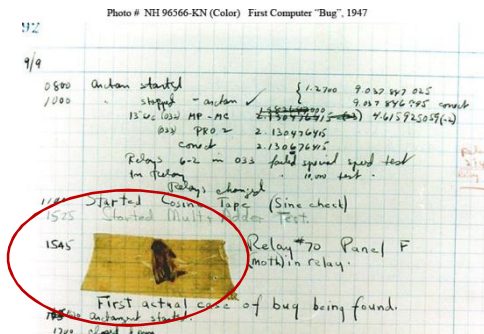 Photo # NH 96566-KN (Color) First Computer "Bug", 1947
92
9/9
0800 antan started
1000 " stopped - antan ✓ { 1.2700 9.037 847 025
9.037 846 995 conect
13"uc (032) MP - MC 2.130476415 4.615925059(-2)
(033) PRO 2 2.130476415
conect 2.130676415
Relays 6-2 in 033 failed special speed test
in relay " 11,000 test.
Relays changed
1100 Started Cosine Tape (Sine check)
1525 Started Mult+Adder Test.
1545 Relay #70 Panel F
(moth) in relay.
First actual case of bug being found.
antangent started.
1700 closed down.